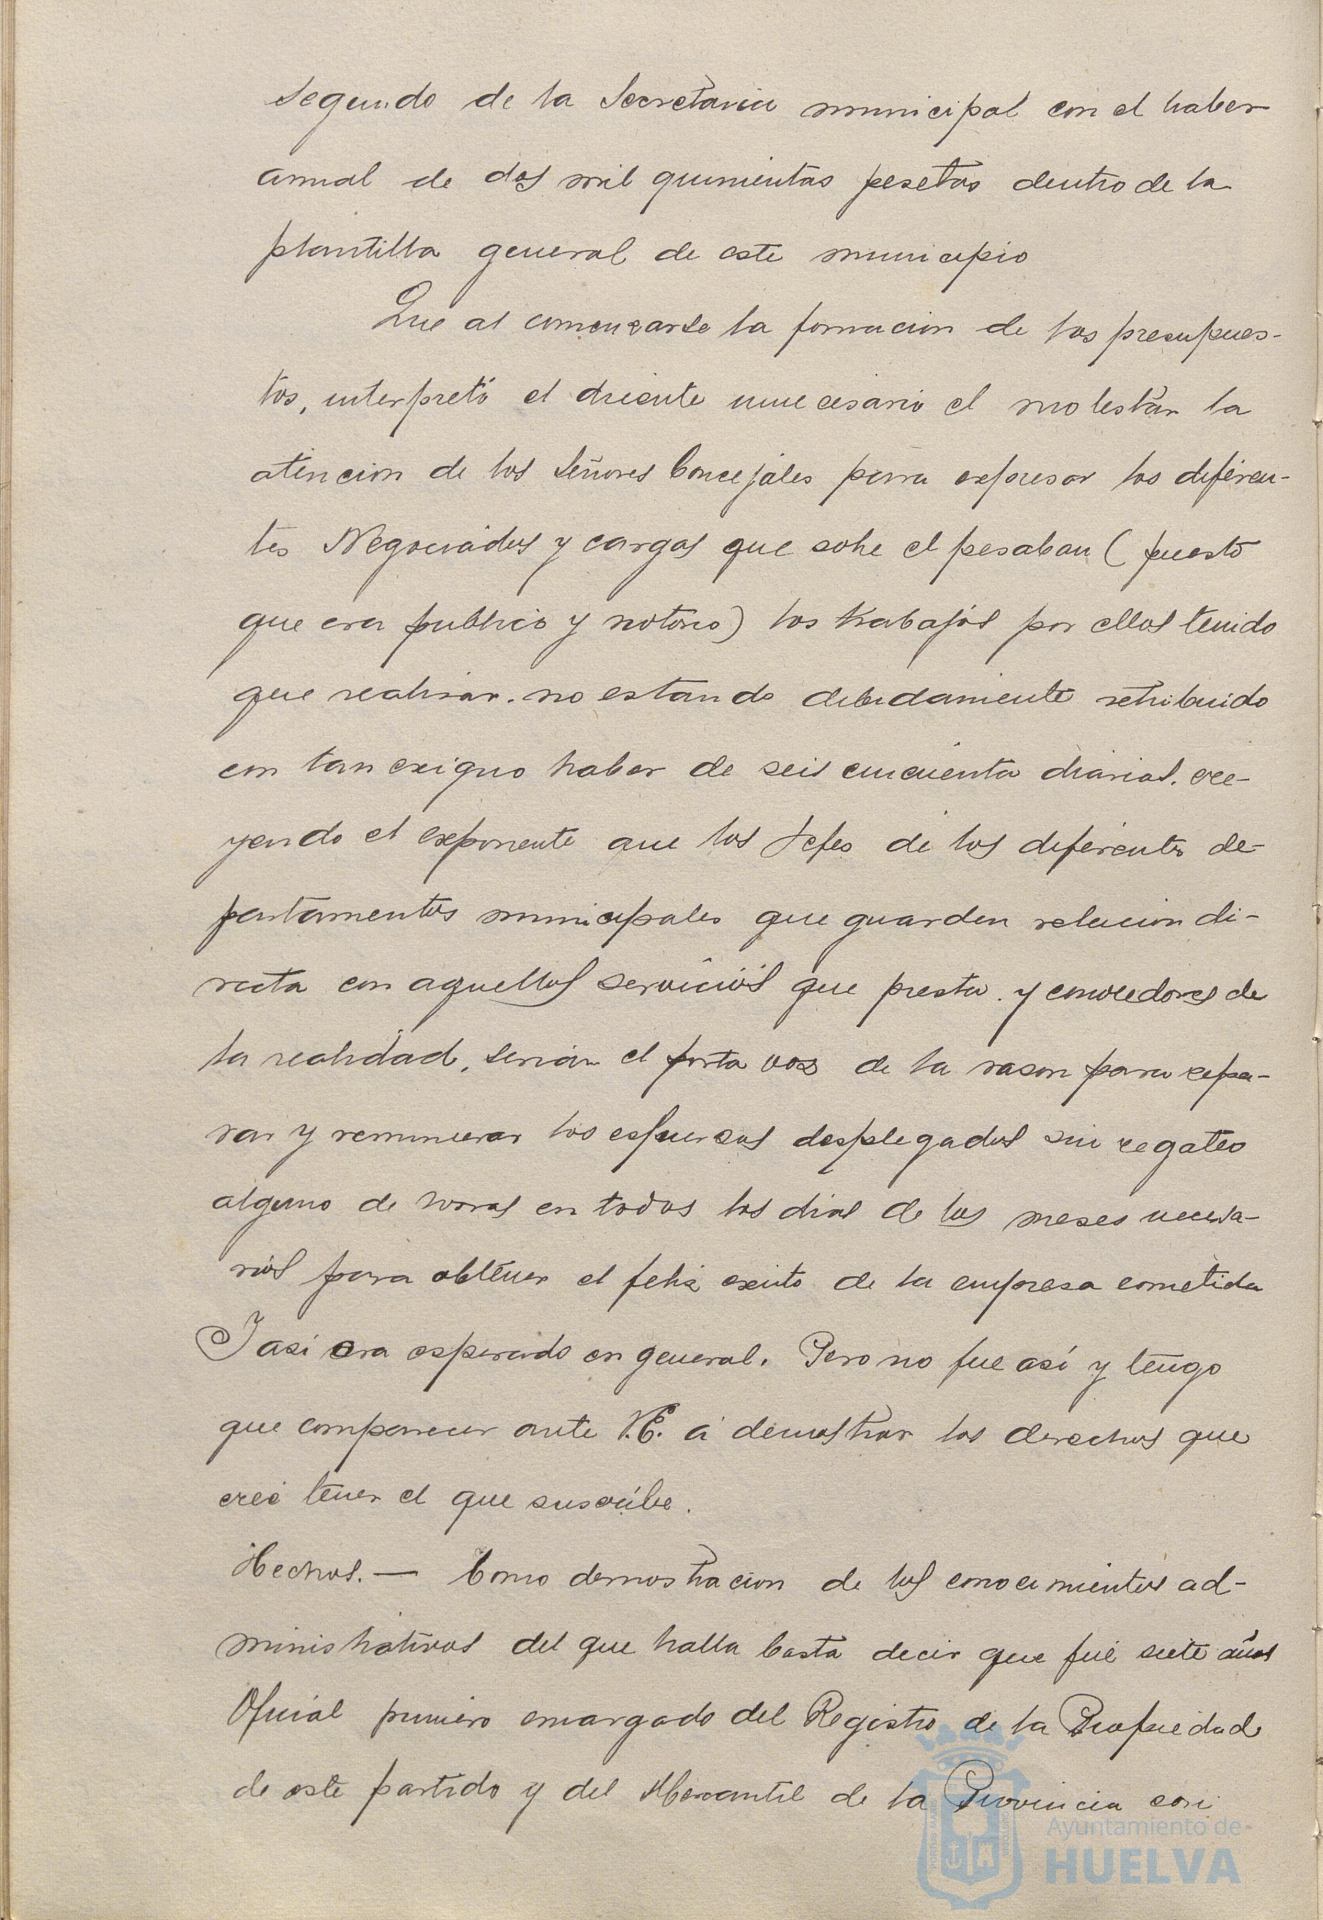 segundo de la Secretaria municipal con el haber
anual de dos mil quinientas pesetas dentro de la
plantilla general de este municipio
Que al comenzarse la formacion de los presupues-
tos, interpretó el diciente innecesario el molestar la
atencion de los Señores Concejales para expresar los diferen-
tes Negociados y cargos que sobre el pesaban (puesto
que era publico y notorio) los trabajos por ellos tenido
que realizar. no estando debidamente retribuido
con tan exiguo haber de seis cincuenta diarias. cre-
yendo el exponente que los Jefes de los diferentes de-
partamentos municipales que guarden relacion di-
recta con aquellos servicios que presta. y conocedores de
la realidad, serian el porta voz de la razon para repa-
rar y remunerar los esfuerzos desplegados sin regateo
alguno de horas en todos los dias de los meses necesa-
rios para obtener el feliz exito de la empresa cometida
Y asi era esperado en general. Pero no fue así y tengo
que comparecer ante V.E. á demostrar los derechos que
creé tener el que suscribe.
Hechos. — Como demostracion de los conocimientos ad-
ministrativos del que habla basta decir que fué siete años
Oficial primero encargado del Registro de la Propiedad
de este partido y del Mercantil de la Provincia con
Ayuntamiento de
HUELVA